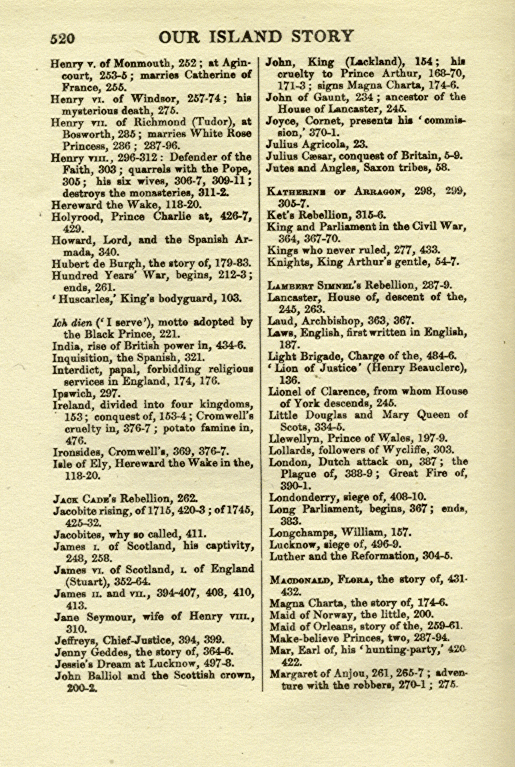 520 OUR ISLAND STORY
Henry v. of Monmouth, 252; at Agin-
court, 253-5; marries Catherine of
France, 255.
Henry vi. of Windsor, 257-74; his
mysterious death, 275.
Henry vii. of Richmond (Tudor), at
Bosworth, 285; marries White Rose
Princess, 286; 287-96.
Henry viii., 296-312: Defender of the
Faith, 303; quarrels with the Pope,
305; his six wives, 306-7, 309-11;
destroys the monasteries, 311-2.
Hereward the Wake, 118-20.
Holyrood, Prince Charlie at, 426-7,
429.
Howard, Lord, and the Spanish Ar-
mada, 340.
Hubert de Burgh, the story of, 179-83.
Hundred Years' War, begins, 212-3;
ends, 261.
'Huscarles,' King's bodyguard, 103.
Ich dien ('I serve'), motto adopted by
the Black Prince, 221.
India, rise of British power in, 434-6.
Inquisition, the Spanish, 321.
Interdict, papal, forbidding religious
services in England, 174, 176.
Ipswich, 297.
Ireland, divided into four kingdoms,
153; conquest of, 153-4; Cromwell's
cruelty in, 376-7; potato famine in,
476.
Ironsides, Cromwell's, 369, 376-7.
Isle of Ely, Hereward the Wake in the,
118-20.
JACK CADE'S Rebellion, 262.
Jacobite rising, of 1715, 420-3; of 1745,
425-32.
Jacobites, why so called, 411.
James i. of Scotland, his captivity,
248, 258.
James vi. of Scotland, i. of England
(Stuart), 352-64.
James ii. and vii., 394-407, 408, 410,
413.
Jane Seymour, wife of Henry viii.,
310.
Jeffreys, Chief-Justice, 394, 399.
Jenny Geddes, the story of, 364-6.
Jessie's Dream at Lucknow, 497-8.
John Balliol and the Scottish crown,
200-2.
John, King (Lackland), 154; his
cruelty to Prince Arthur, 168-70,
171-3; signs Magna Charta, 174-6.
John of Gaunt, 234; ancestor of the
House of Lancaster, 245.
Joyce, Cornet, presents his 'commis-
sion,' 370-1.
Julius Agricola, 23.
Julius Cæsar, conquest of Britain, 5-9.
Jutes and Angles, Saxon tribes, 58.
KATHERINE OF ARRAGON, 298, 299,
305-7.
Ket's Rebellion, 315-6.
King and Parliament in the Civil War,
364, 367-70.
Kings who never ruled, 277, 433.
Knights, King Arthur's gentle, 54-7.
LAMBERT SIMNEL'S Rebellion, 287-9.
Lancaster, House of, descent of the,
245, 263.
Laud, Archbishop, 363, 367.
Laws, English, first written in English,
187.
Light Brigade, Charge of the, 484-6.
'Lion of Justice' (Henry Beauclerc),
136.
Lionel of Clarence, from whom House
of York descends, 245.
Little Douglas and Mary Queen of
Scots, 334-5.
Llewellyn, Prince of Wales, 197-9.
Lollards, followers of Wycliffe, 303.
London, Dutch attack on, 387; the
Plague of, 388-9; Great Fire of,
390-1.
Londonderry, siege of, 408-10.
Long Parliament, begins, 367; ends,
383.
Longchamps, William, 157.
Lucknow, siege of, 496-9.
Luther and the Reformation, 304-5.
MACDONALD, FLORA, the story of, 431-
432.
Magna Charta, the story of, 174-6.
Maid of Norway, the little, 200.
Maid of Orleans, story of the, 259-61.
Make-believe Princes, two, 287-94.
Mar, Earl of, his 'hunting-party,' 420-
422.
Margaret of Anjou, 261, 265-7; adven-
ture with the robbers, 270-1; 275.